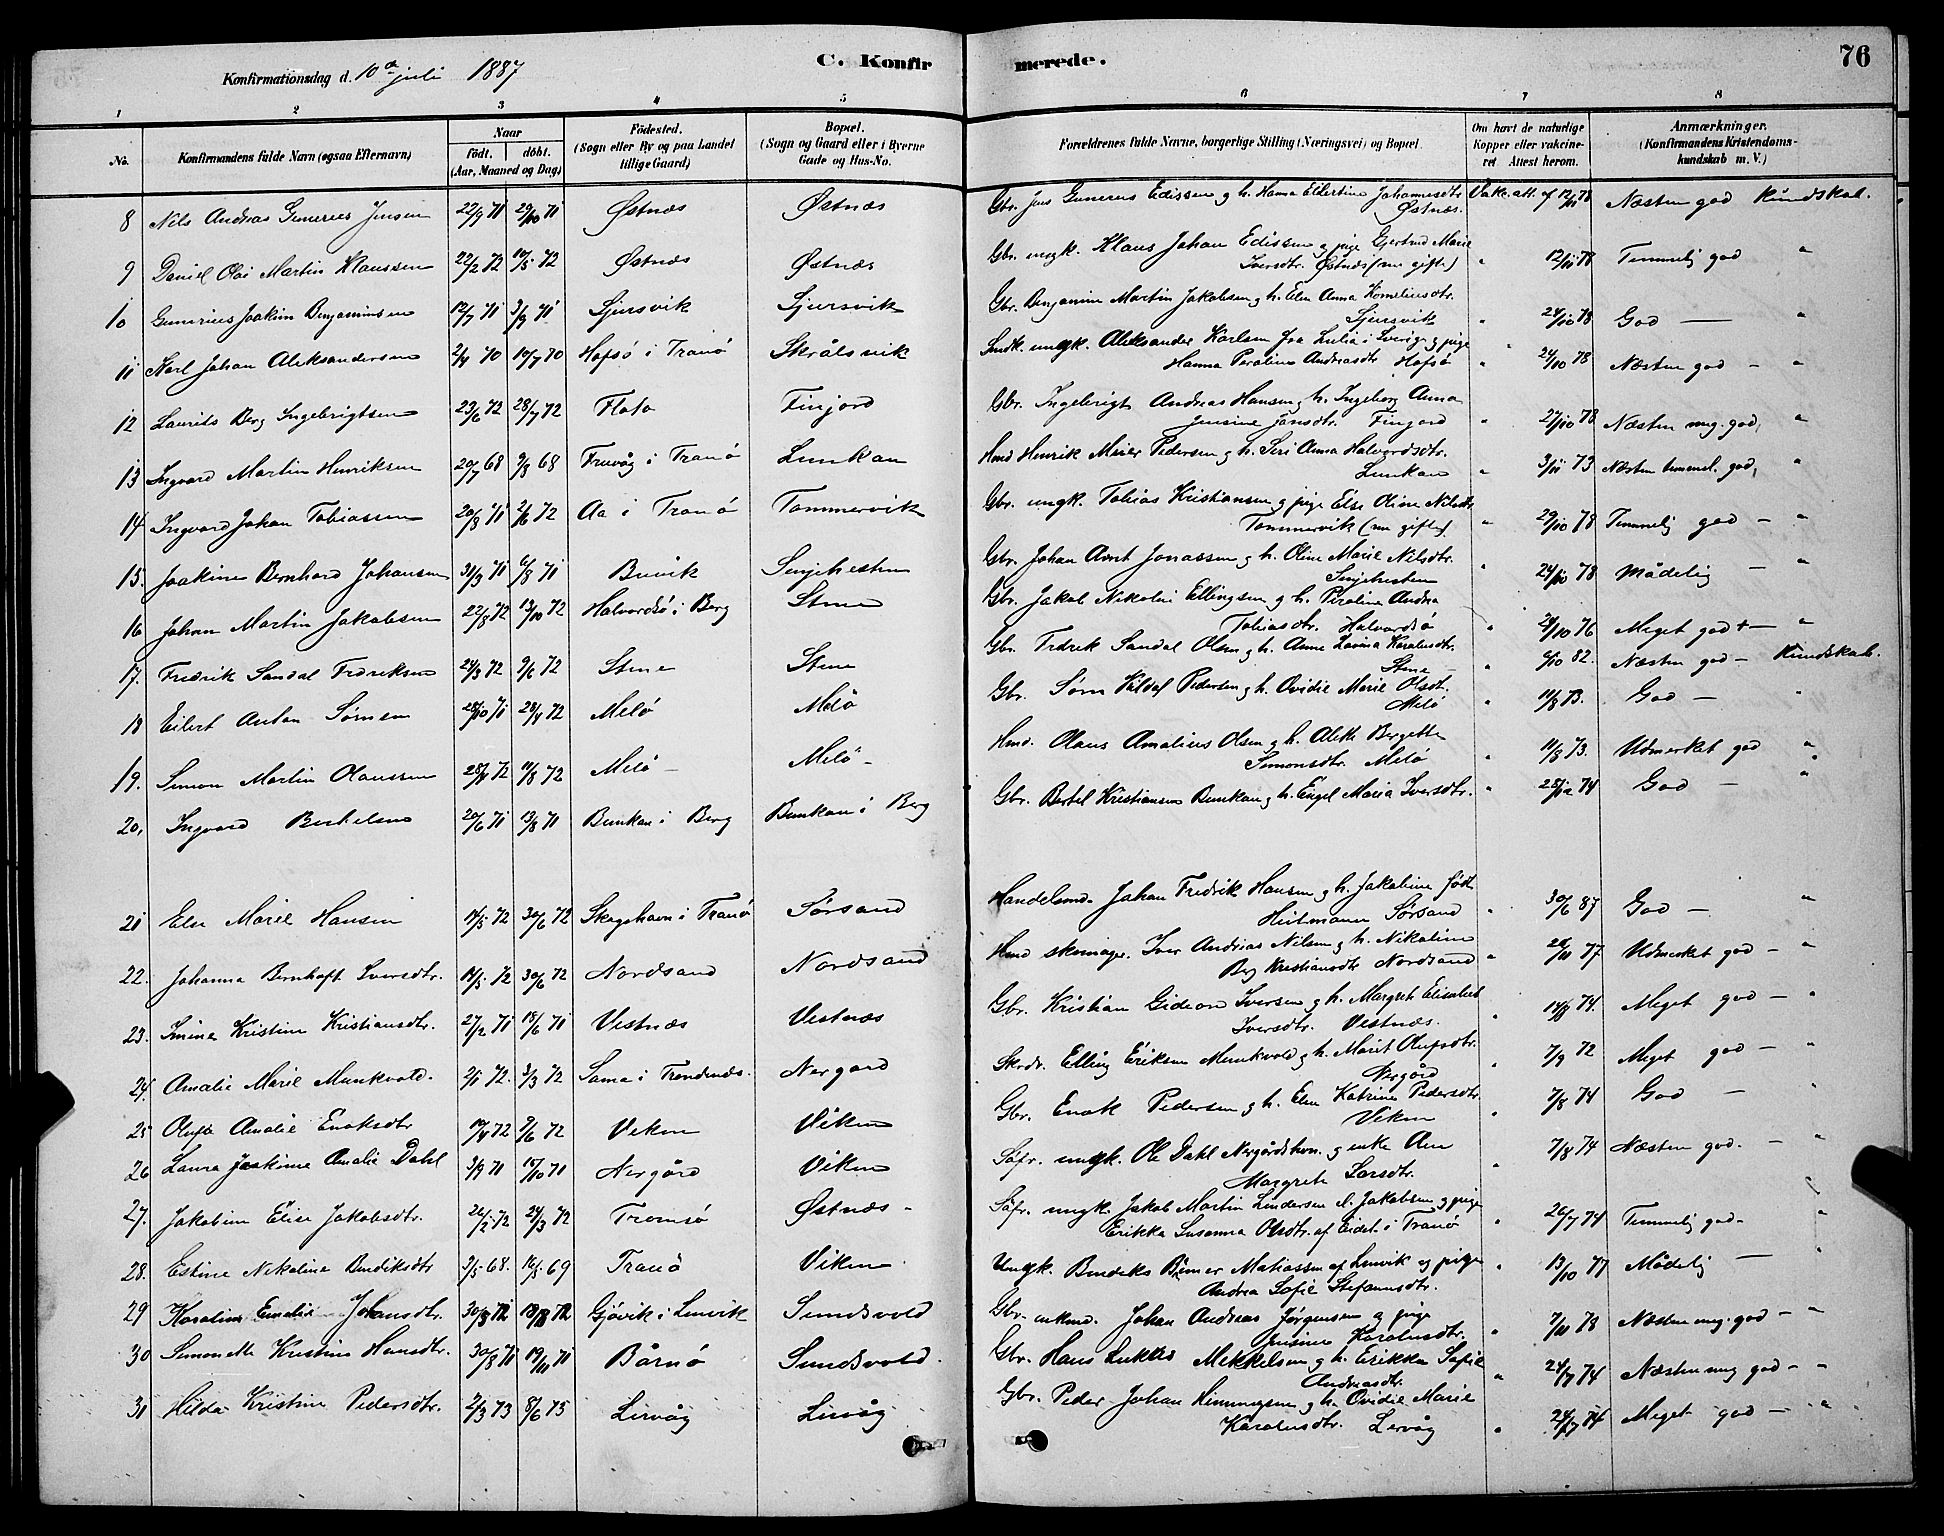 Konfirmationsdag d. 10de juli 1887
C. Konfirmerede.
76
1 2 3 4 5 6 7 8
No. Konfirmandens fulde Navn (ogsaa Efternavn) Naar født. døbt. (Aar, Maaned og Dag) Fødested. (Sogn eller By og paa Landet tillige Gaard) Bopæl. (Sogn og Gaard eller i Byerne Gade og Hus-No. Forældrenes fulde Navne, borgerlige Stilling (Næringsvei) og Bopæl. Om havt de naturlige Kopper eller vakcineret Attest herom. Anmærkninger. (Konfirmandens Kristendomskundskab m. V.)
8 Nils Andreas Gunerius Jensen 22/9 71 29/10 71 Østnæs Østnæs Gbr. Jens Gunerus Edissen og h. Hanna Ellertine Johannesdtr. Østnæs. Vakc. att. af 12/11 78 Næsten god Kundskab.
9 Daniel Olai Martin Klaussen 22/2 72 10/5 72 Østnæs Østnæs Gbr. ungk. Klaus Johan Edissen og pige Gjertrud Marie Iversdtr. Østnæs (nu gifte) " 12/10 78 Temmelig god "
10 Gunerius Joakim Benjaminsen 12/7 71 3/9 71 Sjursvik Sjursvik Gbr. Benjamin Martin Jakobsen og h. Elen Anna Korneliusdtr. Sjursvik " 24/10 78 God — "
11 Karl Johan Aleksandersen 2/4 70 10/7 70 Hofsø i Tranø Skrålsvik Indk. ungk. Aleksander Karlsen fra Lulia i Sverige og pige Hanna Peroline Andreasdtr Hofsø " 24/10 78 Næsten god — "
12 Laurits Berg Ingebrigtsen 23/6 72 28/7 72 Flata Finjord Gbr. Ingebrigt Andreas Hansen og h. Ingeborg Anna Jensine Jansdtr. Finjord " 27/10 78 Næsten meg. god, "
13 Ingvard Martin Henriksen 20/7 68 9/8 68 Fruvåg i Tranø Lunkan Hmd Henrik Meier Pedersen og h. Siri Anna Halvardsdtr. Lunkan " 3/11 73 Næsten temmel. god, "
14 Ingvard Johan Tobiassen 20/8 71 2/6 72 Aa i Tranø Tømmervik Gbr. ungk. Tobias Kristiansen og pige Else Oline Nilsdtr Tømmervik (nu gifte) " 29/10 78 Temmelig god — "
15. Joakim Bernhard Johansen 31/3 71 6/8 71 Buvik Senjehesten Gbr. Johan Arnt Jonassen og h. Oline Marie Nilsdtr. Senjehesten " 24/10 78 Mådelig — "
16 Johan Martin Jakobsen 22/8 72 13/10 72 Halvardsø i Berg Stene Gbr. Jakob Nikolai Ellingsen og h. Peroline Andrea Tobiasdtr. Halvardsø " 29/10 76 Meget god + — "
17. Fredrik Sandal Fredriksen 24/3 72 9/6 72 Stene Stene Gbr. Fredrik Sandal Olsen og h. Anne Lovina Karolusdtr. Stene — " 6/10 82. Næsten god — Kundskab.
18 Eilert Anton Sørensen 28/10 71 28/4 72 Melø Melø Gbr. Søren Kildal Pedersen og h. Ovidie Marie Olsdt. Melø " 11/8 73. God — "
19. Simon Martin Olaussen 28/4 72 11/8 72 Melø — Melø — Hmd. Olaus Amalius Olsen og h. Alette Bergette Simonsdtr. Melø " 11/8 73. Udmerket god "
20, Ingvard Berthelsen 20/6 71 13/8 71 Bunkan i Berg Bunkan i Berg Gbr. Bertel Kristiansen Bunkan og h. Engel Maria Iversdtr. " 28/12 74 God — "
21 Else Marie Hansen 14/5 72 30/6 72 Skrogshavn i Tranø Sørsand Handelsmd. Johan Fredrik Hansen og h. Jakobine født Heitmann Sørsand " 30/6 87 God — "
22. Johanna Bernhoft Iversdtr. 14/5 72 30/6 72 Nordsand Nordsand Hmd skomager. Iver Andreas Nilsen og h. Nikoline Berg Kristiansdtr Nordsand " 28/11 77 Udmerket god — "
23. Imine Kristine Kristiansdtr. 27/2 71 18/6 71 Vestnæs Vestnæs Gbr. Kristian Gideon Iversen og h. Margret Elisabet Iversdtr. Vestnæs. " 14/8 74. Meget god — "
24. Amalie Marie Munkvold. 2/1 72. 3/3 72 Sama i Trondenæs. Nergård Skrdr. Elling Eriksen Munkvold og h. Marit Olufsdtr. Nergård " 7/9 72 Meget god — "
25 Olufa Amalie Enoksdtr 10/4 72 9/6 72 Viken Viken Gbr. Enok Pedersen og h. Elen Katrine Pedersdtr. Viken " 7/8 74 God —
26 Laura Joakime Amalie Dahl 3/9 71 15/10 71 Nergård Viken Søfr. ungk. Ole Dahl Nergårdshvn. og enke Ane Margrete Larsdtr. " 7/8 74 Næsten god. — "
27. Jakobine Elise Jakobsdtr. 26/2 72 24/3 72 Tromsø Østnæs — Søfr. ungk. Jakob Martin Lindersen el. Jakobsen og pige Erikka Susanna Olsdtr. af Eidet i Tranø " 26/7 74 Temmelig god — "
28. Estine Nikoline Bendiksdtr 3/5 68. 16/5 69 Tranø Viken Ungk. Bendiks Reimer Matiassen af Lenvik og pige Andrea Sofie Stefanusdtr. " 13/10 77 Mådelig — "
29 Karoline Emalie Johansdtr. 30/3 72 18/8 72 Gjøvik i Lenvik Sundsvold Gbr. enkmd. Johan Andreas Jørgensen og pige Jensine Karolusdtr. " 7/11 78 Næsten meg. god — "
30 Simonette Kristine Hansdtr. 30/8 71 19/11 71 Bårnø Sundsvold. Gbr. Hans Lukkas Mikkelsen og h. Erikka Sofie Andreasdtr. " 24/7 74 Næsten meg god — "
31 Hilda Kristine Pedersdtr. 2/3 73 8/6 73 Lervåg Lervåg Gbr. Peder Johan Hemmingsen og h. Ovidie Marie Karolusdtr. Lervåg " 24/7 74 Meget god — "